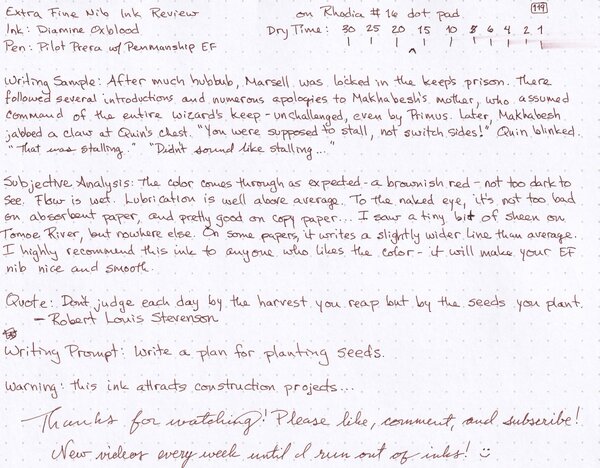 Extra Fine Nib Ink Review on Rhodia #16 dot pad 119
Ink: Diamine Oxblood Dry Time: 30 25 20 15 10 8 6 4 2 1
Pen: Pilot Prera w/ Penmanship EF
Writing Sample: After much hubbub, Marsell was locked in the keep's prison. There
followed several introductions and numerous apologies to Makhabesh's mother, who assumed
command of the entire wizard's keep - unchallenged, even by Primus. Later, Makhabesh
jabbed a claw at Quin's chest. "You were supposed to stall, not switch sides!" Quin blinked.
"That was stalling." "Didn't sound like stalling..."
Subjective Analysis: The color comes through as expected - a brownish red - not too dark to
see. Flow is wet. Lubrication is well above average. To the naked eye, it's not too bad
on absorbent paper, and pretty good on copy paper... I saw a tiny bit of sheen on
Tomoe River, but nowhere else. On some papers, it writes a slightly wider line than average.
I highly recommend this ink to anyone who likes the color - it will make your EF
nib nice and smooth.
Quote: Don't judge each day by the harvest you reap but by the seeds you plant.
- Robert Louis Stevenson
Writing Prompt: Write a plan for planting seeds.
Warning: this ink attracts construction projects...
Thanks for watching! Please like, comment, and subscribe!
New videos every week until I run out of inks! :)